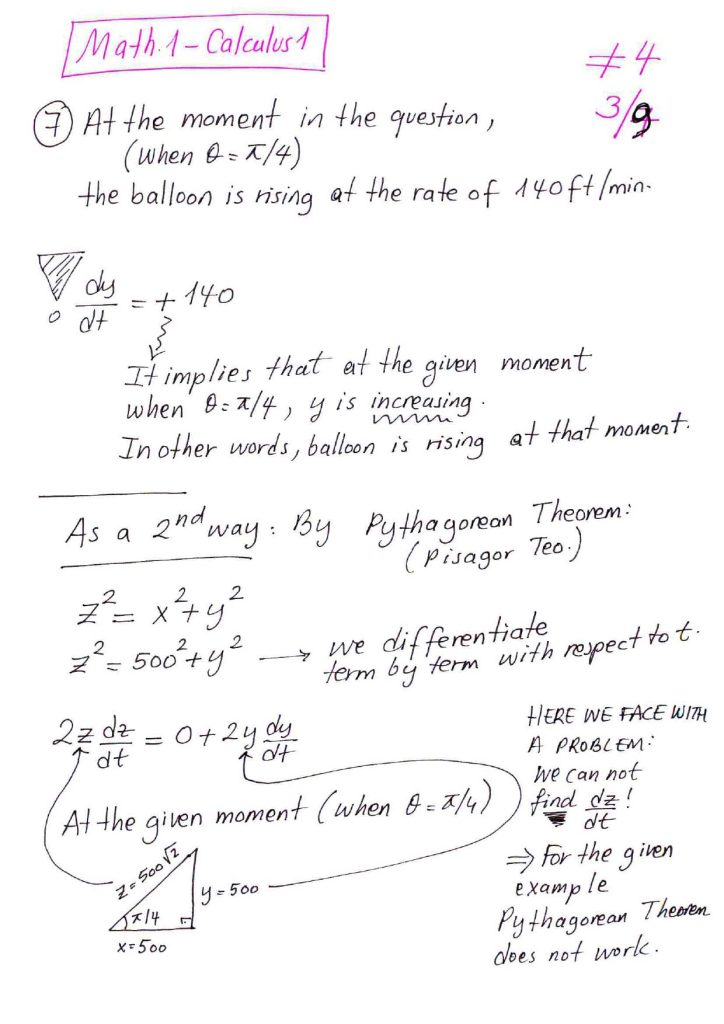 Math.1 - Calculus 1
#4
3/9
7 At the moment in the question,
(when θ = π/4)
the balloon is rising at the rate of 140 ft/min.
dy/dt = + 140
0
It implies that at the given moment
when θ = π/4, y is increasing.
In other words, balloon is rising at that moment.
As a 2nd way: By Pythagorean Theorem:
(Pisagor Teo.)
z² = x² + y²
z² = 500² + y² → we differentiate
term by term with respect to t.
2z dz/dt = 0 + 2y dy/dt
At the given moment (when θ = π/4)
z = 500√2
y = 500
π/4
x = 500
HERE WE FACE WITH
A PROBLEM:
we can not
find dz/dt !
⇒ For the given
example
Pythagorean Theorem
does not work.